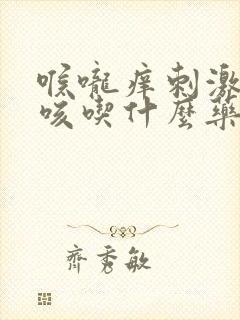 喉嚨癢刺激
咳喫什麼藥
齊秀敏